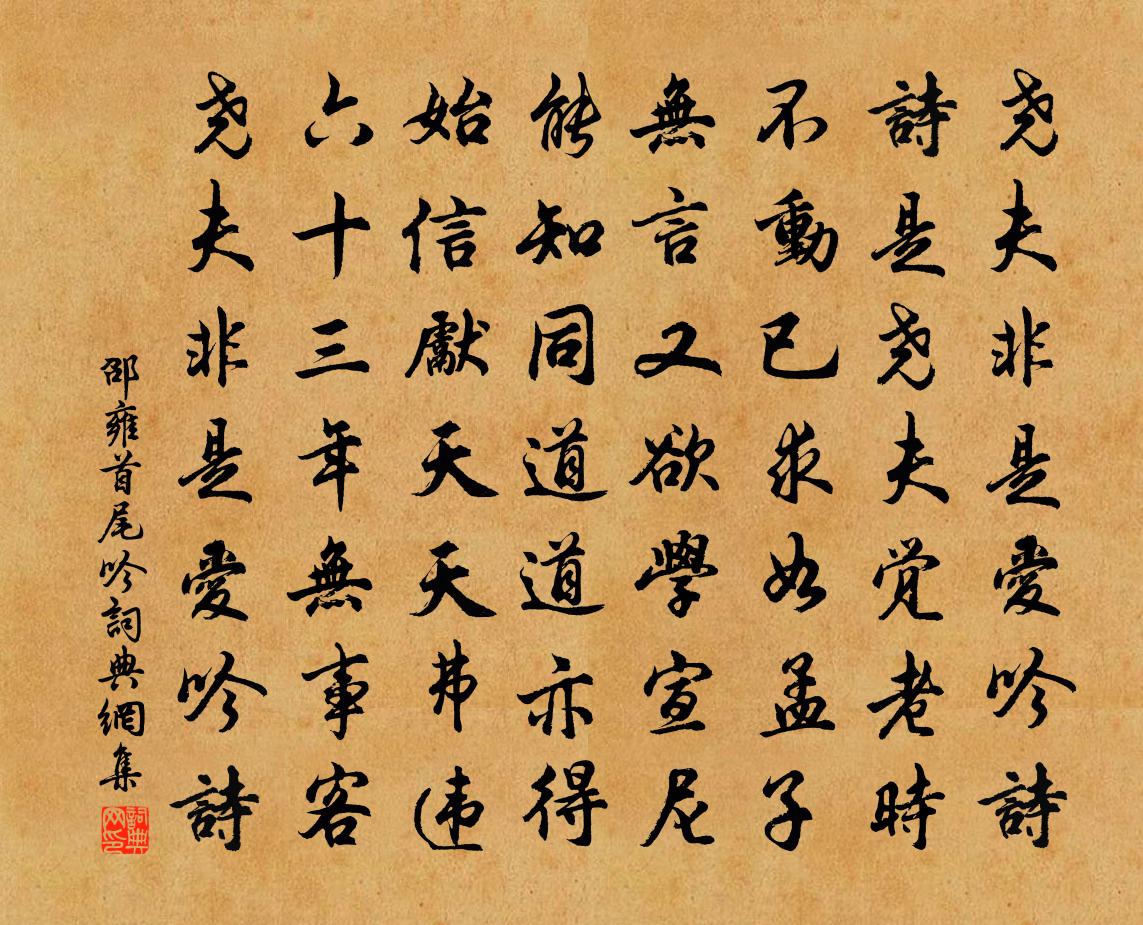 尧夫非是愛吟詩
詩是尧夫覚老時
不動已求如孟子
無言又欲學宣尼
能知同道道亦得
始信獻天天弗违
六十三年無事客
尧夫非是愛吟詩
邵雍首尾吟詞典網集
詞典
网印